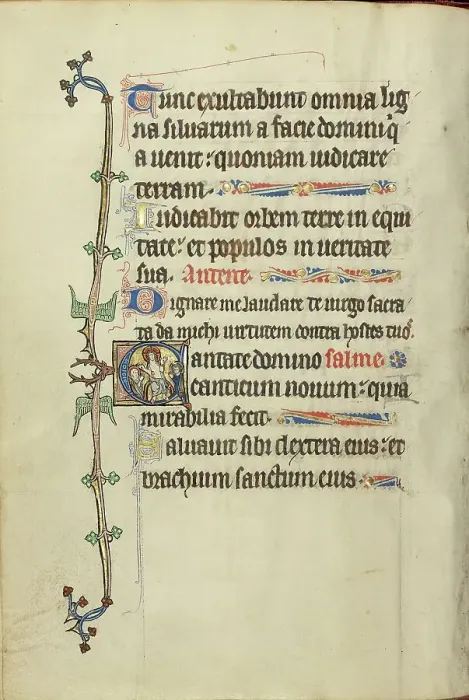 Tunc exultabunt omnia lig
na siluarum a facie domini q̄
a uenit : quoniam iudicare
terram.
Iudicabit orbem terre in equi
tate : et populos in ueritate
sua. Antene.
Dignare me laudare te uirgo sacra
ta da michi uirtutem contra hostes tuos.
Cantate domino salme.
canticum nouum : quia
mirabilia fecit.
Saluauit sibi dextera eius : et
brachium sanctum eius.